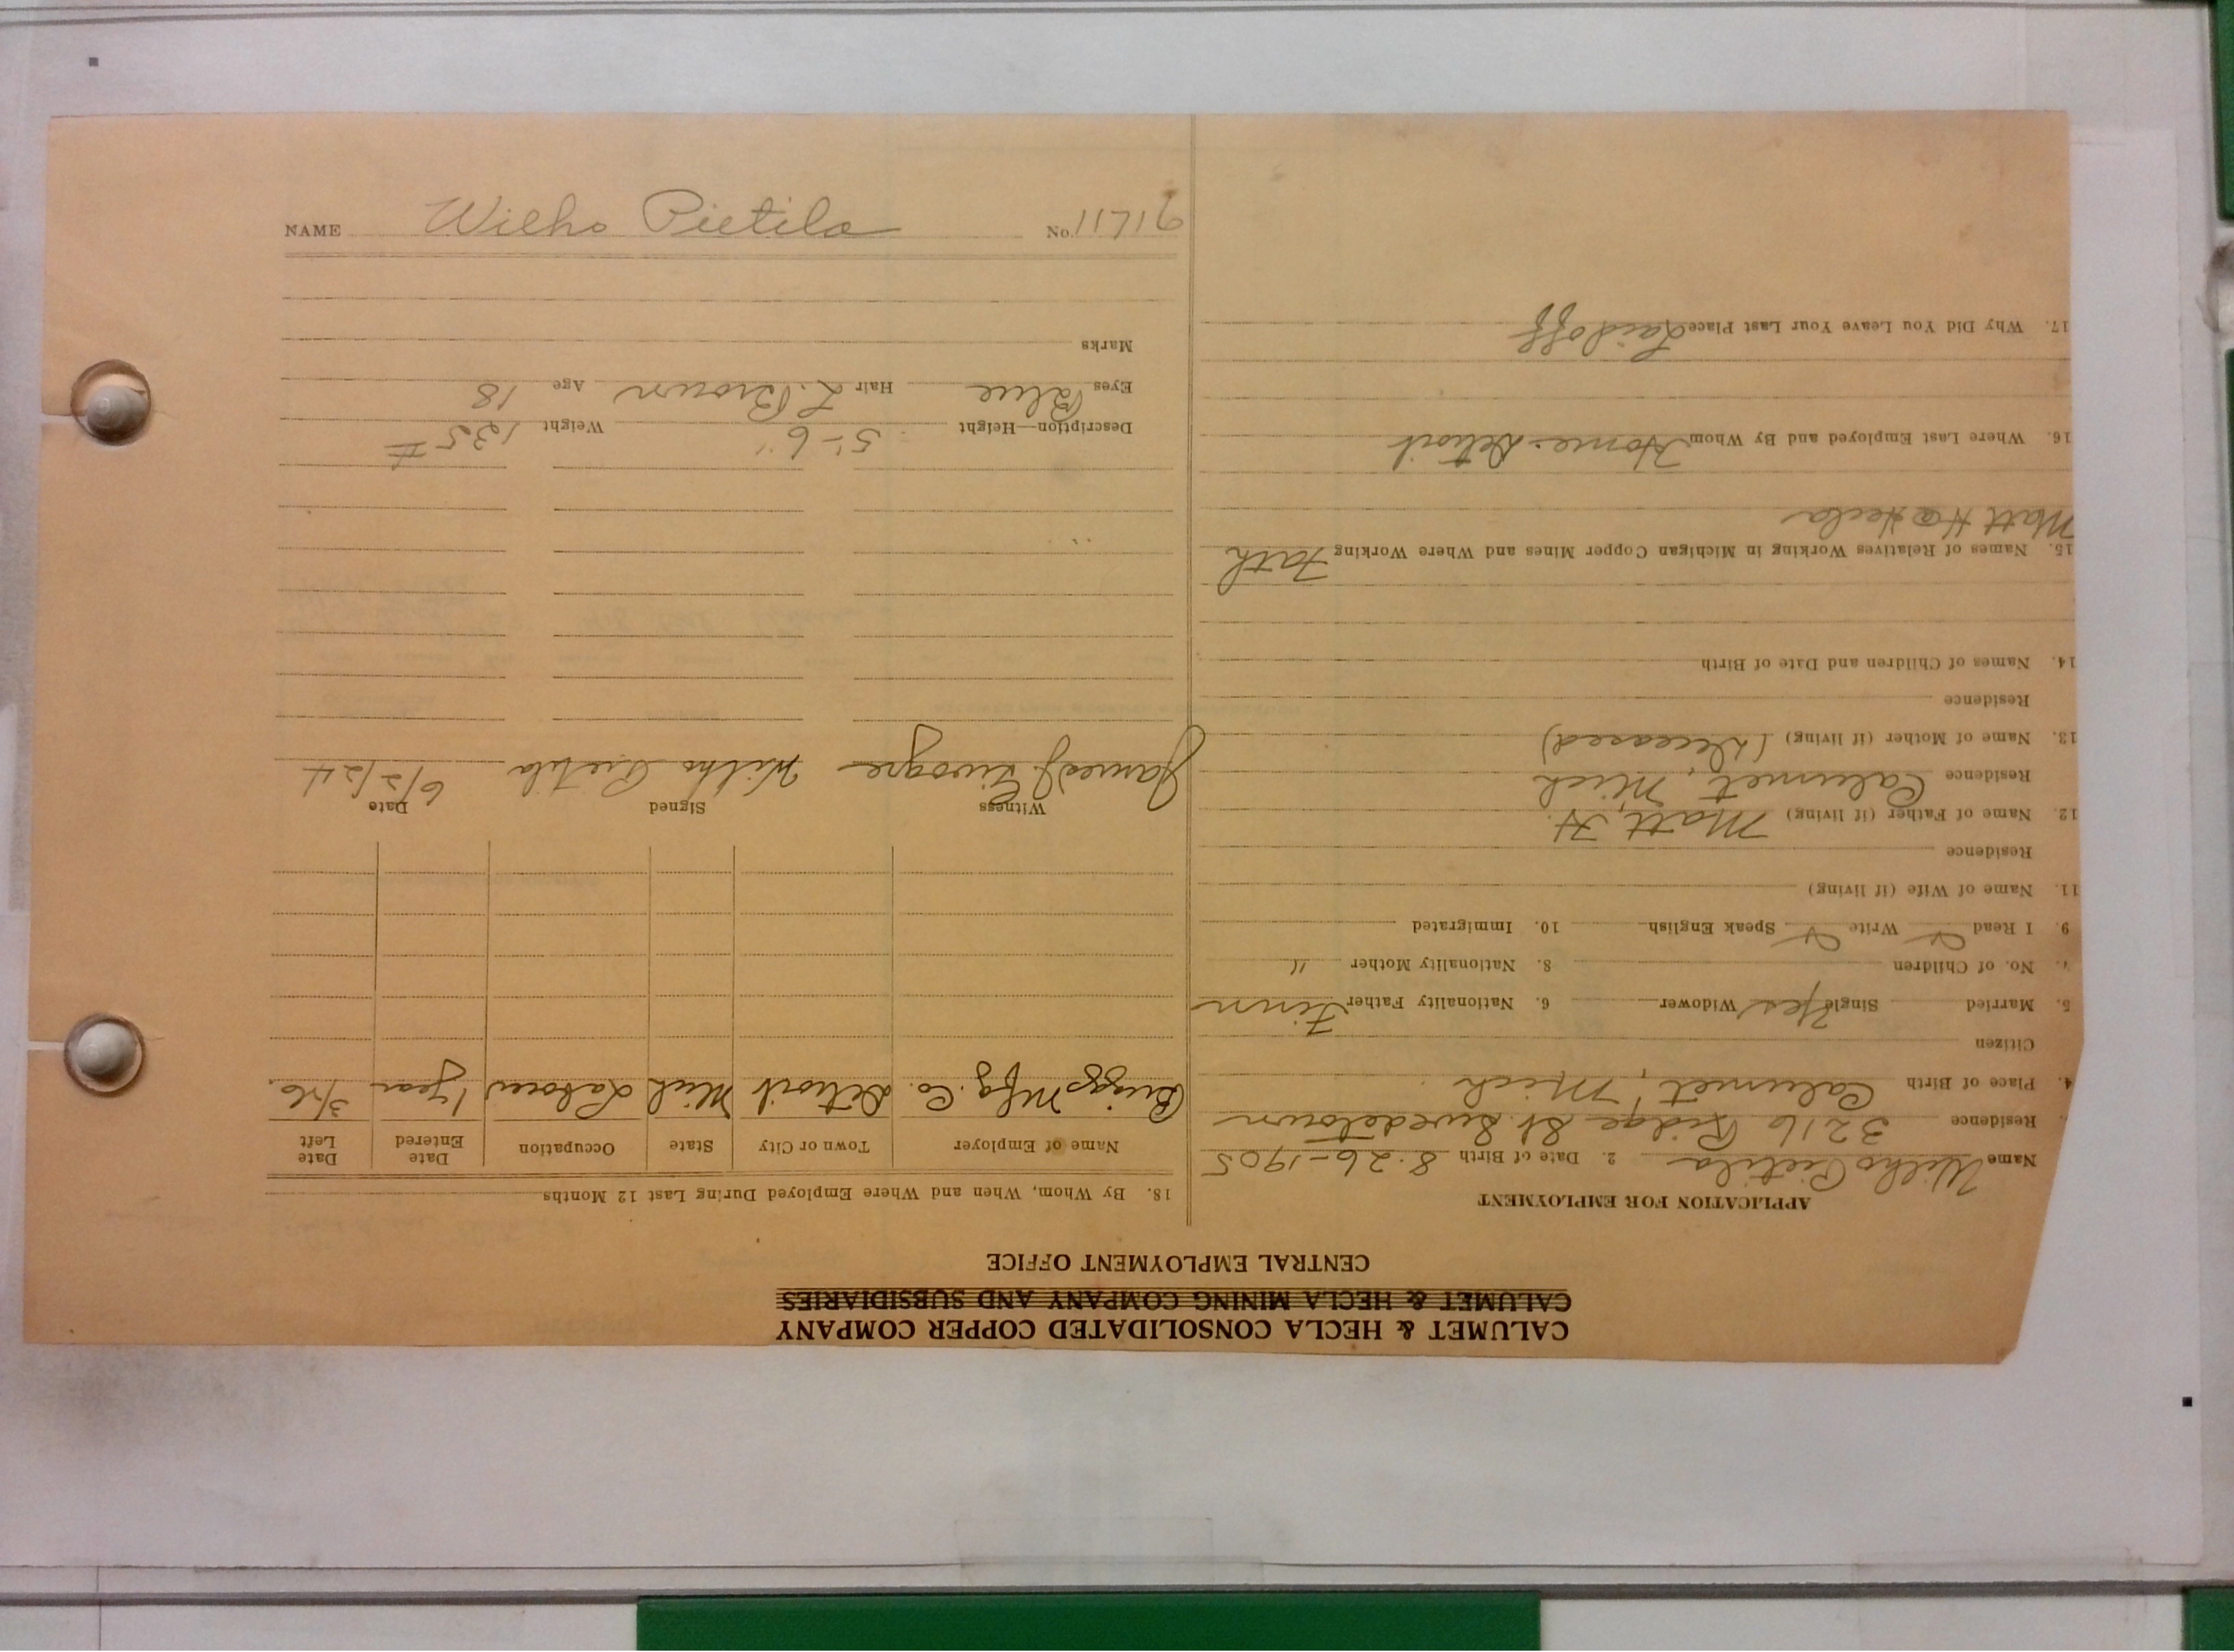 CALUMET & HECLA CONSOLIDATED COPPER COMPANY
CALUMET & HECLA MINING COMPANY AND SUBSIDIARIES
CENTRAL EMPLOYMENT OFFICE
APPLICATION FOR EMPLOYMENT
Name Wilho Pietila 2. Date of Birth 8-26-1905
Residence 3216 Ridge St. Swedetown
4. Place of Birth Calumet, Mich
Citizen
5. Married Single Yes Widower 6. Nationality Father Finn
7. No. of Children 8. Nationality Mother "
9. I Read Write Speak English 10. Immigrated
11. Name of Wife (if living)
Residence
12. Name of Father (if living) Matt H.
Residence Calumet, Mich
13. Name of Mother (if living) (Deceased)
Residence
14. Names of Children and Date of Birth
15. Names of Relatives Working in Michigan Copper Mines and Where Working Fath
Matt H @ Hecla
16. Where Last Employed and By Whom Home - Detroit
17. Why Did You Leave Your Last Place Laid off
18. By Whom, When and Where Employed During Last 12 Months
Name of Employer Town or City State Occupation Date Entered Date Left
Briggs Mfg. Co. Detroit Mich Laborer 1 year 3/26
Witness Signed Date
James J. Wilho Pietila 6/2/24
Description—Height 5'-6" Weight 135 #
Eyes Blue Hair L. Brown Age 18
Marks
NAME Wilho Pietila No. 11717